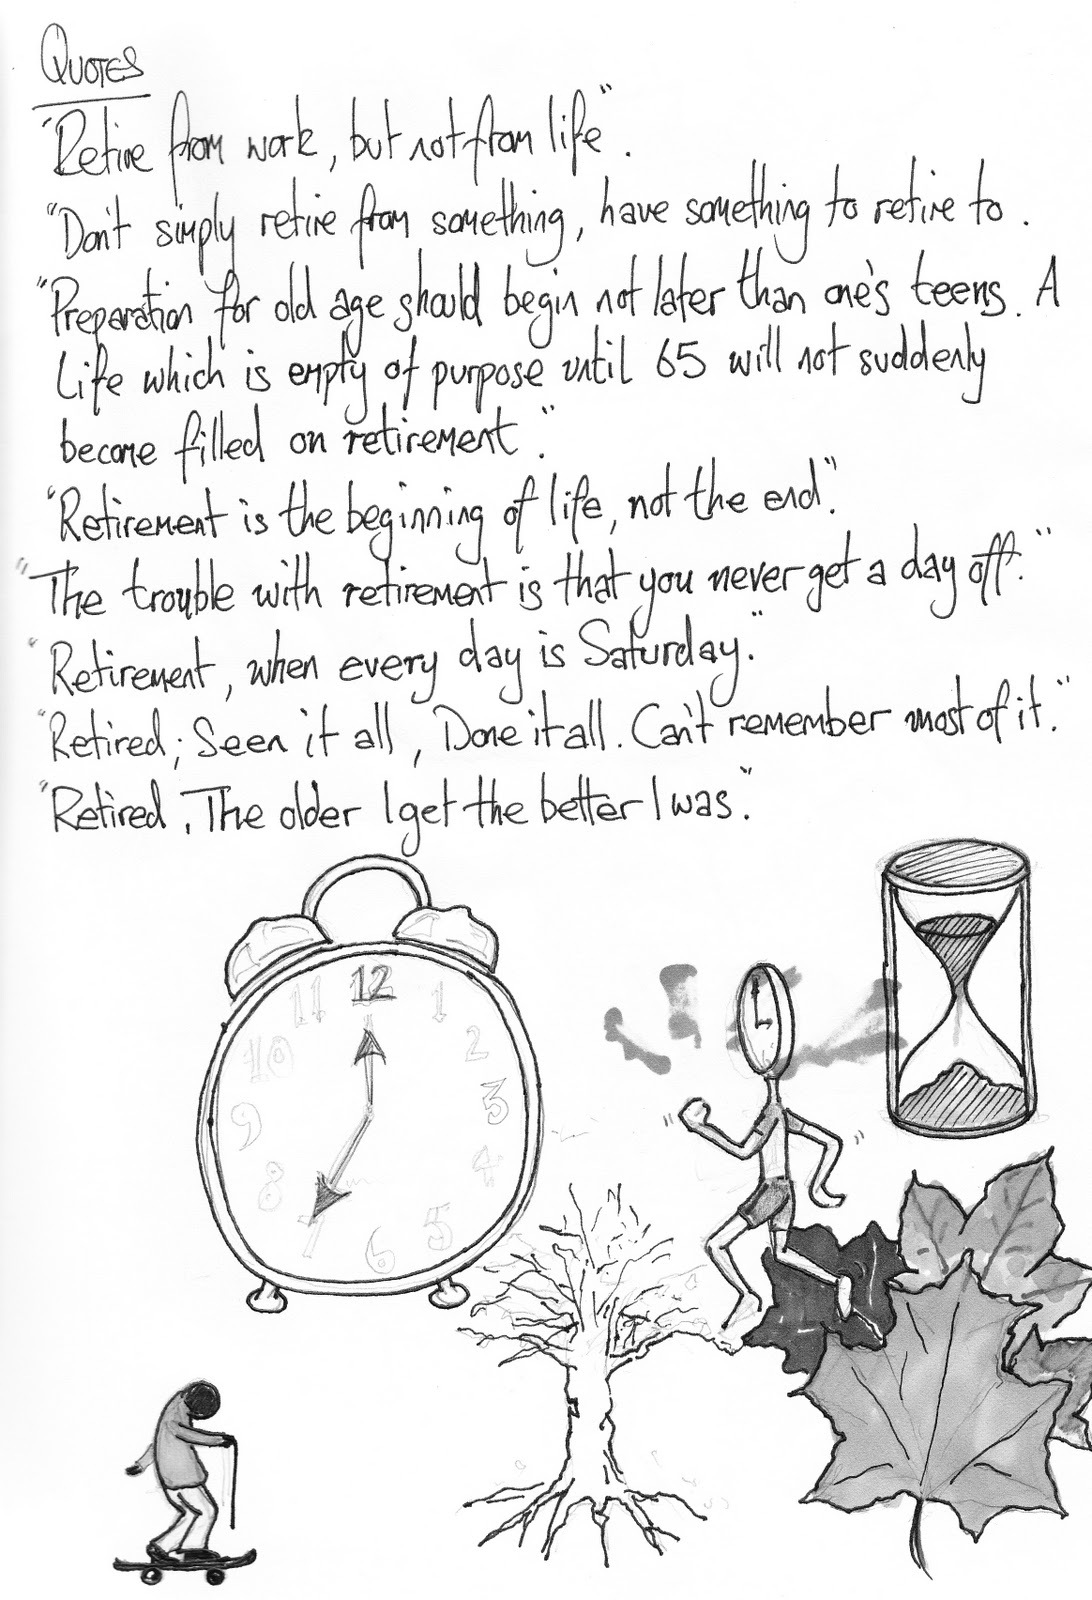 QUOTES
"Retire from work, but not from life".
"Don't simply retire from something, have something to retire to.
"Preparation for old age should begin not later than one's teens. A
Life which is empty of purpose until 65 will not suddenly
become filled on retirement."
"Retirement is the beginning of life, not the end".
"The trouble with retirement is that you never get a day off."
"Retirement, when every day is Saturday."
"Retired; Seen it all, Done it all. Can't remember most of it."
"Retired, The older I get the better I was."
12
11 1
10 2
9 3
8 4
7 5
6